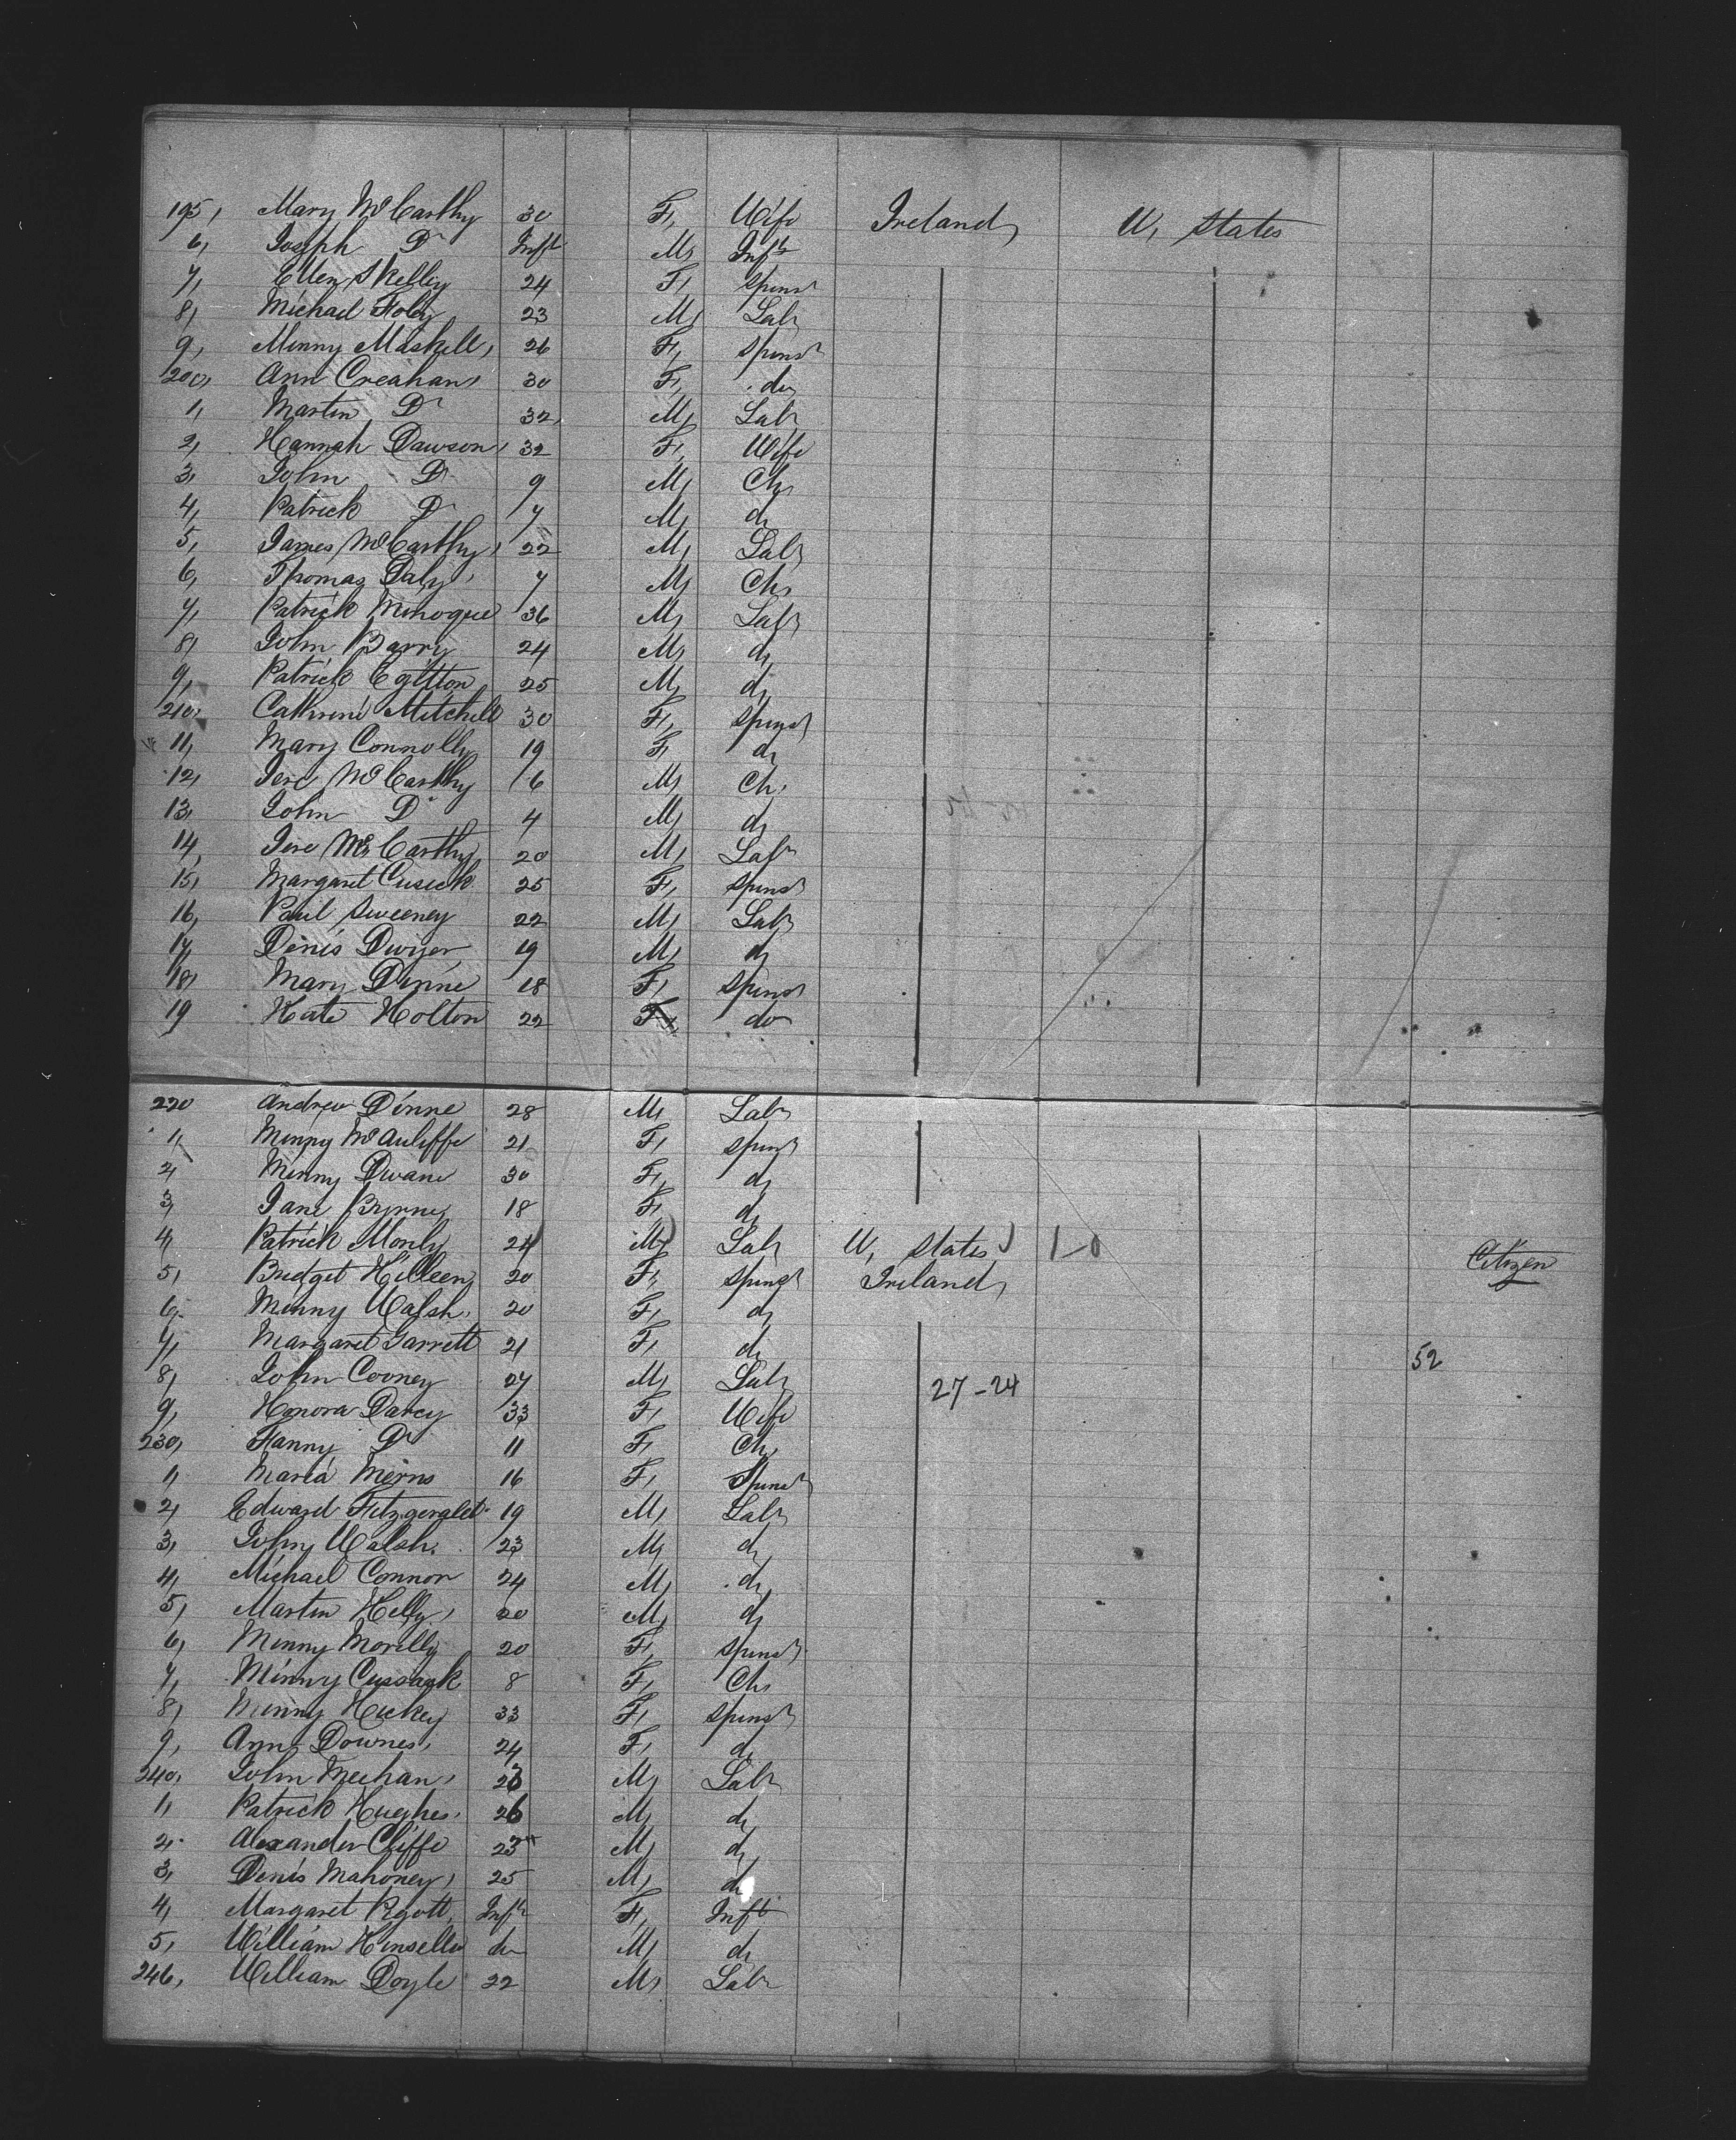 195, Mary McCarthy 30 F, Wife Ireland, U, States
6, Joseph Do Inft M, Inft
7, Ellen Skelly 24 F, Spinst
8, Michael Foley 23 M, Labr
9, Minny Maskell, 26 F, Spinst
200, Ann Creahan, 30 F, do
1, Martin Do 32, M, Labr
2, Hannah Dawson, 32 F, Wife
3, John Do 9 M, Ch,
4, Patrick Do 7 M, do
5, James McCarthy, 22 M, Labr
6, Thomas Daly, 7 M, Ch,
7, Patrick Minogue 36 M, Labr
8, John Barry 24 M, do
9, Patrick Egitton 25 M, do
210, Cathrine Mitchell 30 F, Spinst
11, Mary Connolly 19 F, do
12, Jere McCarthy 6 M, Ch,
13, John Do 4 M, do
14, Jere McCarthy 20 M, Labr
15, Margaret Cusick 25 F, Spinst
16, Paul Sweeney 22 M, Labr
17, Denis Dwyer 19 M, do
18, Mary Dinne 18 F, Spinst
19 Kate Holton 22 F, do
220 Andrew Dinne 28 M, Labr
1, Minny McAuliffe 21 F, Spinst
2 Minny Dwane 30 F, do
3, Jane Byrne, 18 F, do
4, Patrick Monly 24 M, Labr U, States 1-0 Citizen
5, Bridget Killeen, 20 F, Spinst Ireland,
6, Minny Walsh, 20 F, do
7, Margaret Garrett 21 F, do 52
8, John Cooney 27 M, Labr 27-24
9, Honora Darcy 33 F, Wife
230, Fanny Do 11 F, Ch,
1, Maria Mirns 16 F, Spinst
2, Edward Fitzgerald 19 M, Labr
3, John Walsh. 23 M, do
4, Michael Connor 24 M, do
5, Martin Kelly, 20 M, do
6, Minny Morilly 20 F, Spinst
7, Minny Cussack 8 F, Ch,
8, Minny Hickey 33 F, Spinst
9, Ann Downes, 24 F, do
240, John Meehan, 23 M, Labr
1, Patrick Hughes, 26 M, do
2, Alexander Cliffe 23 M, do
3, Denis Mahoney, 25 M, do
4, Margaret Pigott, Inft F, Inft
5, William Kinsella do M, do
246, William Doyle 22 M, Labr